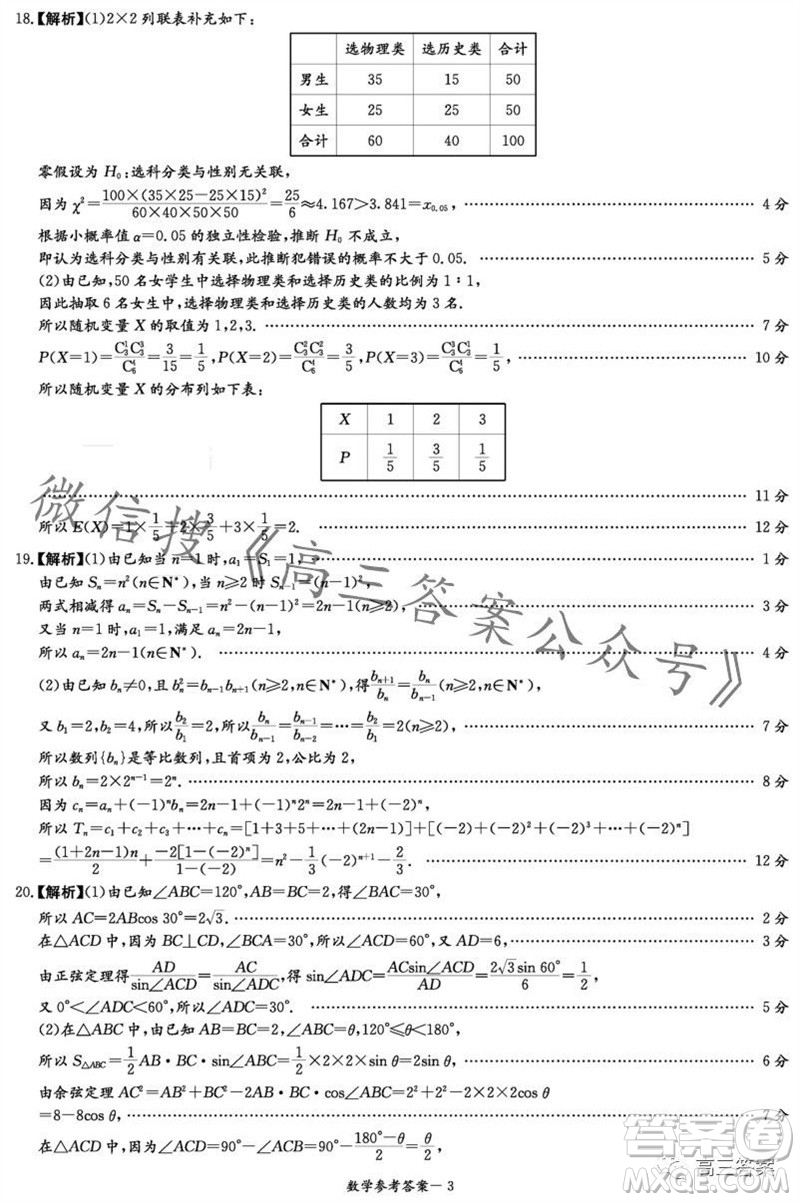 18.【解析】(1)2×2列联表补充如下:
选物理类 选历史类 合计
男生 35 15 50
女生 25 25 50
合计 60 40 100
零假设为 H₀:选科分类与性别无关联,
因为 χ²=\frac{100×(35×25-25×15)²}{60×40×50×50}=\frac{25}{6}≈4.167>3.841=x₀.₀₅, …… 4 分
根据小概率值 α=0.05 的独立性检验,推断 H₀ 不成立,
即认为选科分类与性别有关联,此推断犯错误的概率不大于 0.05. …… 5 分
(2)由已知,50 名女学生中选择物理类和选择历史类的比例为 1∶1,
因此抽取 6 名女生中,选择物理类和选择历史类的人数均为 3 名.
所以随机变量 X 的取值为 1,2,3. …… 7 分
P(X=1)=\frac{C_3^1C_3^3}{C_6^4}=\frac{3}{15}=\frac{1}{5},P(X=2)=\frac{C_3^2C_3^2}{C_6^4}=\frac{3}{5},P(X=3)=\frac{C_3^3C_3^1}{C_6^4}=\frac{1}{5}, …… 10 分
所以随机变量 X 的分布列如下表:
X 1 2 3
P \frac{1}{5} \frac{3}{5} \frac{1}{5}
…… 11 分
所以 E(X)=1×\frac{1}{5}+2×\frac{3}{5}+3×\frac{1}{5}=2. …… 12 分
19.【解析】(1)由已知当 n=1 时,a₁=S₁=1, …… 1 分
由已知 Sₙ=n²(n∈N*),当 n≥2 时 Sₙ₋₁=(n-1)²,
两式相减得 aₙ=Sₙ-Sₙ₋₁=n²-(n-1)²=2n-1(n≥2). …… 3 分
又当 n=1 时,a₁=1,满足 aₙ=2n-1,
所以 aₙ=2n-1(n∈N*). …… 4 分
(2)由已知 bₙ≠0,且 bₙ²=bₙ₋₁bₙ₊₁(n≥2,n∈N*),得\frac{b_{n+1}}{b_n}=\frac{b_n}{b_{n-1}}(n≥2,n∈N*),
又 b₁=2,b₂=4,所以\frac{b_2}{b_1}=2,所以\frac{b_n}{b_{n-1}}=\frac{b_{n-1}}{b_{n-2}}=…=\frac{b_2}{b_1}=2(n≥2), …… 7 分
所以数列{bₙ}是等比数列,且首项为 2,公比为 2,
所以 bₙ=2×2ⁿ⁻¹=2ⁿ. …… 8 分
因为 cₙ=aₙ+(-1)ⁿbₙ=2n-1+(-1)ⁿ2ⁿ=2n-1+(-2)ⁿ,
所以 Tₙ=c₁+c₂+c₃+…+cₙ=[1+3+5+…+(2n-1)]+[(-2)+(-2)²+(-2)³+…+(-2)ⁿ]
=\frac{(1+2n-1)n}{2}+\frac{-2[1-(-2)ⁿ]}{1-(-2)}=n²-\frac{1}{3}(-2)ⁿ⁺¹-\frac{2}{3}. …… 12 分
20.【解析】(1)由已知∠ABC=120°,AB=BC=2,得∠BAC=30°,
所以 AC=2ABcos 30°=2√3. …… 2 分
在△ACD 中,因为 BC⊥CD,∠BCA=30°,所以∠ACD=60°,又 AD=6, …… 3 分
由正弦定理得\frac{AD}{sin∠ACD}=\frac{AC}{sin∠ADC},得 sin∠ADC=\frac{ACsin∠ACD}{AD}=\frac{2√3sin 60°}{6}=\frac{1}{2},
又 0°<∠ADC<60°,所以∠ADC=30°. …… 5 分
(2)在△ABC 中,由已知 AB=BC=2,∠ABC=θ,120°≤θ<180°,
所以 S△ABC=\frac{1}{2}AB·BC·sin∠ABC=\frac{1}{2}×2×2×sin θ=2sin θ, …… 6 分
由余弦定理 AC²=AB²+BC²-2AB·BC·cos∠ABC=2²+2²-2×2×2cos θ
=8-8cos θ, …… 7 分
在△ACD 中,因为∠ACD=90°-∠ACB=90°-\frac{180°-θ}{2}=\frac{θ}{2},
数学参考答案-3
微信搜《高三答案公众号》
答案圈
高三答案
MXQE.COM